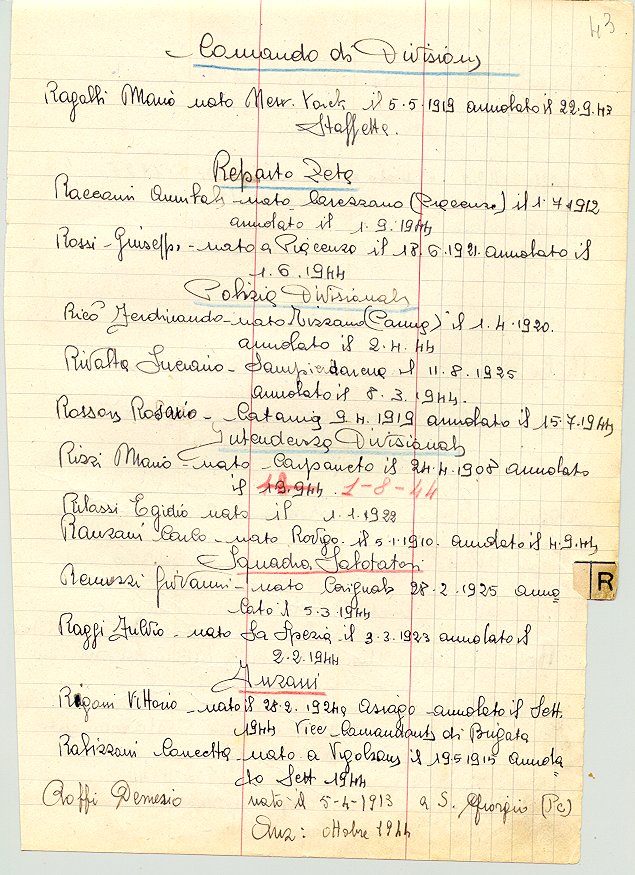 43
Comando di Divisione
Ragalli Mario nato New. York il 5.5.1919 annolato il 22.9.43
Staffetta.
Reparto Zeta
Raccani Annibale - nato Carezzano (Piacenza) il 1.7.1912
annolato il 1.9.1944
Rossi - Giuseppe - nato a Piacenza il 18.6.1921. annolato il
1.6.1944
Polizia Divisionale
Ricò Ferdinando - nato Tizzano (Parma) il 1.4.1920.
annolato il 2.4.44
Rivalta Luciano - Sampierdarena il 11.8.1925
annolato il 8.3.1944.
Rosson Rosario - Catania 9.4.1919 annolato il 15.7.1944
Intendenza Divisionale
Rizzi Mario - nato Carpaneto il 24.4.1908 annolato
il 1.9.944. 1-8-44
Rilassi Egidio nato il 1.1.1922
Ranzani Carlo - nato Rovigo. il 5.1.1910. annolato il 4.9.44
Squadra Sabotatori
R
Remezzi Giovanni - nato Carignale 28.2.1925 anno
lato il 5.3.1944
Raggi Fulvio - nato La Spezia il 3.3.1923 annolato il
2.2.1944
Anzani
Rigoni Vittorio - nato il 28.2.1924 a Asiago annolato il Sett.
1944 Vice Comandante di Brigata
Rabizzani Concetta - nato a Vigolzone il 19.5.1915 annola
to Sett 1944
Roffi Demesio nato il 5-4-1913 a S. Giorgio (Pc)
Anz: ottobre 1944